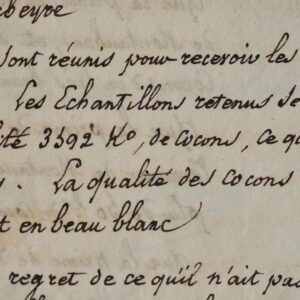 beyre
sont réunis pour recevoir les
. Les Echantillons retenus se
lité 3592 Ko, de cocons, ce qu
s. La qualité des cocons
t en beau blanc
regret de ce qu'il n'ait pas